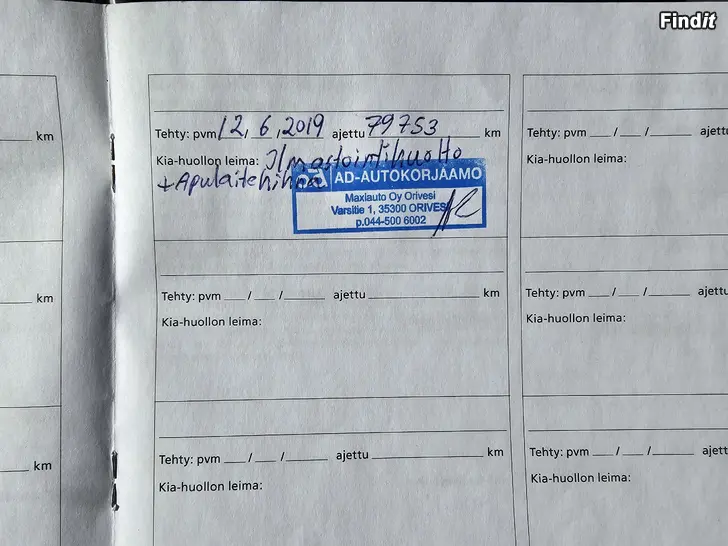 Findit
km
Tehty: pvm 12, 6, 2019 ajettu 79753 km
Kia-huollon leima: Ilmastointihuolto
+ Apulaitehihna
AD-AUTOKORJAAMO
Maxiauto Oy Orivesi
Varsitie 1, 35300 ORIVESI
p.044-500 6002
Tehty: pvm __/__/____ ajett
Kia-huollon leima:
km
Tehty: pvm __/__/____ ajettu ____ km
Kia-huollon leima:
Tehty: pvm __/__/____ ajett
Kia-huollon leima:
km
Tehty: pvm __/__/____ ajettu ____ km
Kia-huollon leima:
Tehty: pvm __/__/____ ajett
Kia-huollon leima: